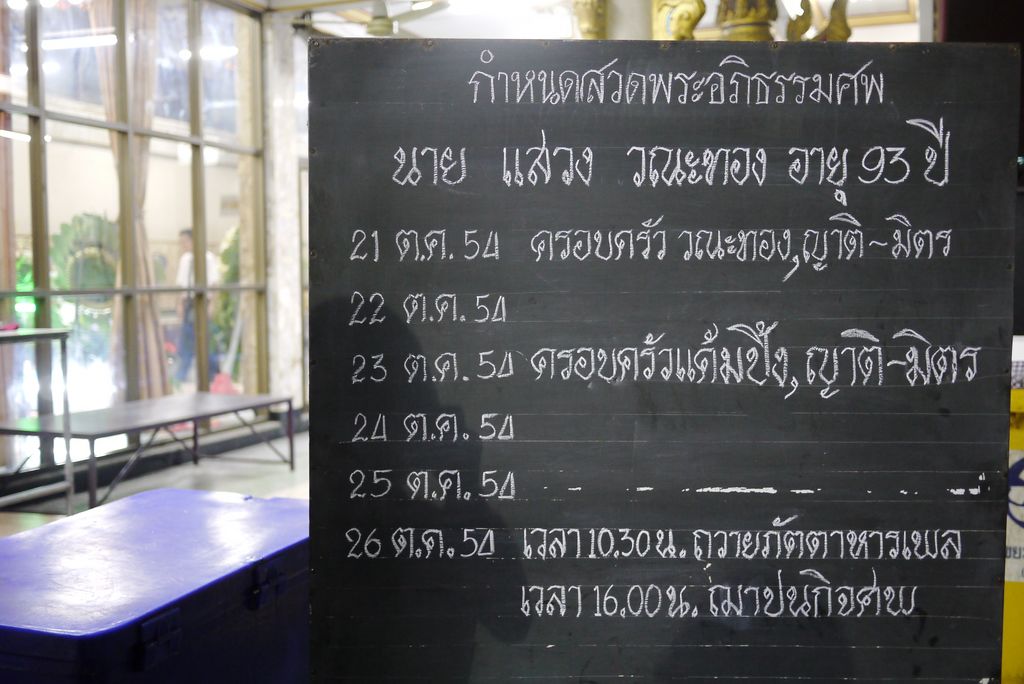 กำหนดสวดพระอภิธรรมศพ
นาย แสวง วณะทอง อายุ 93 ปี
21 ต.ค. 54 ครอบครัว วณะทอง, ญาติ~มิตร
22 ต.ค. 54
23 ต.ค. 54 ครอบครัวแด้มปึ้ง, ญาติ-มิตร
24 ต.ค. 54
25 ต.ค. 54
26 ต.ค. 54 เวลา 10.30 น. ถวายภัตตาหารเพล
เวลา 16.00 น. ฌาปนกิจศพ